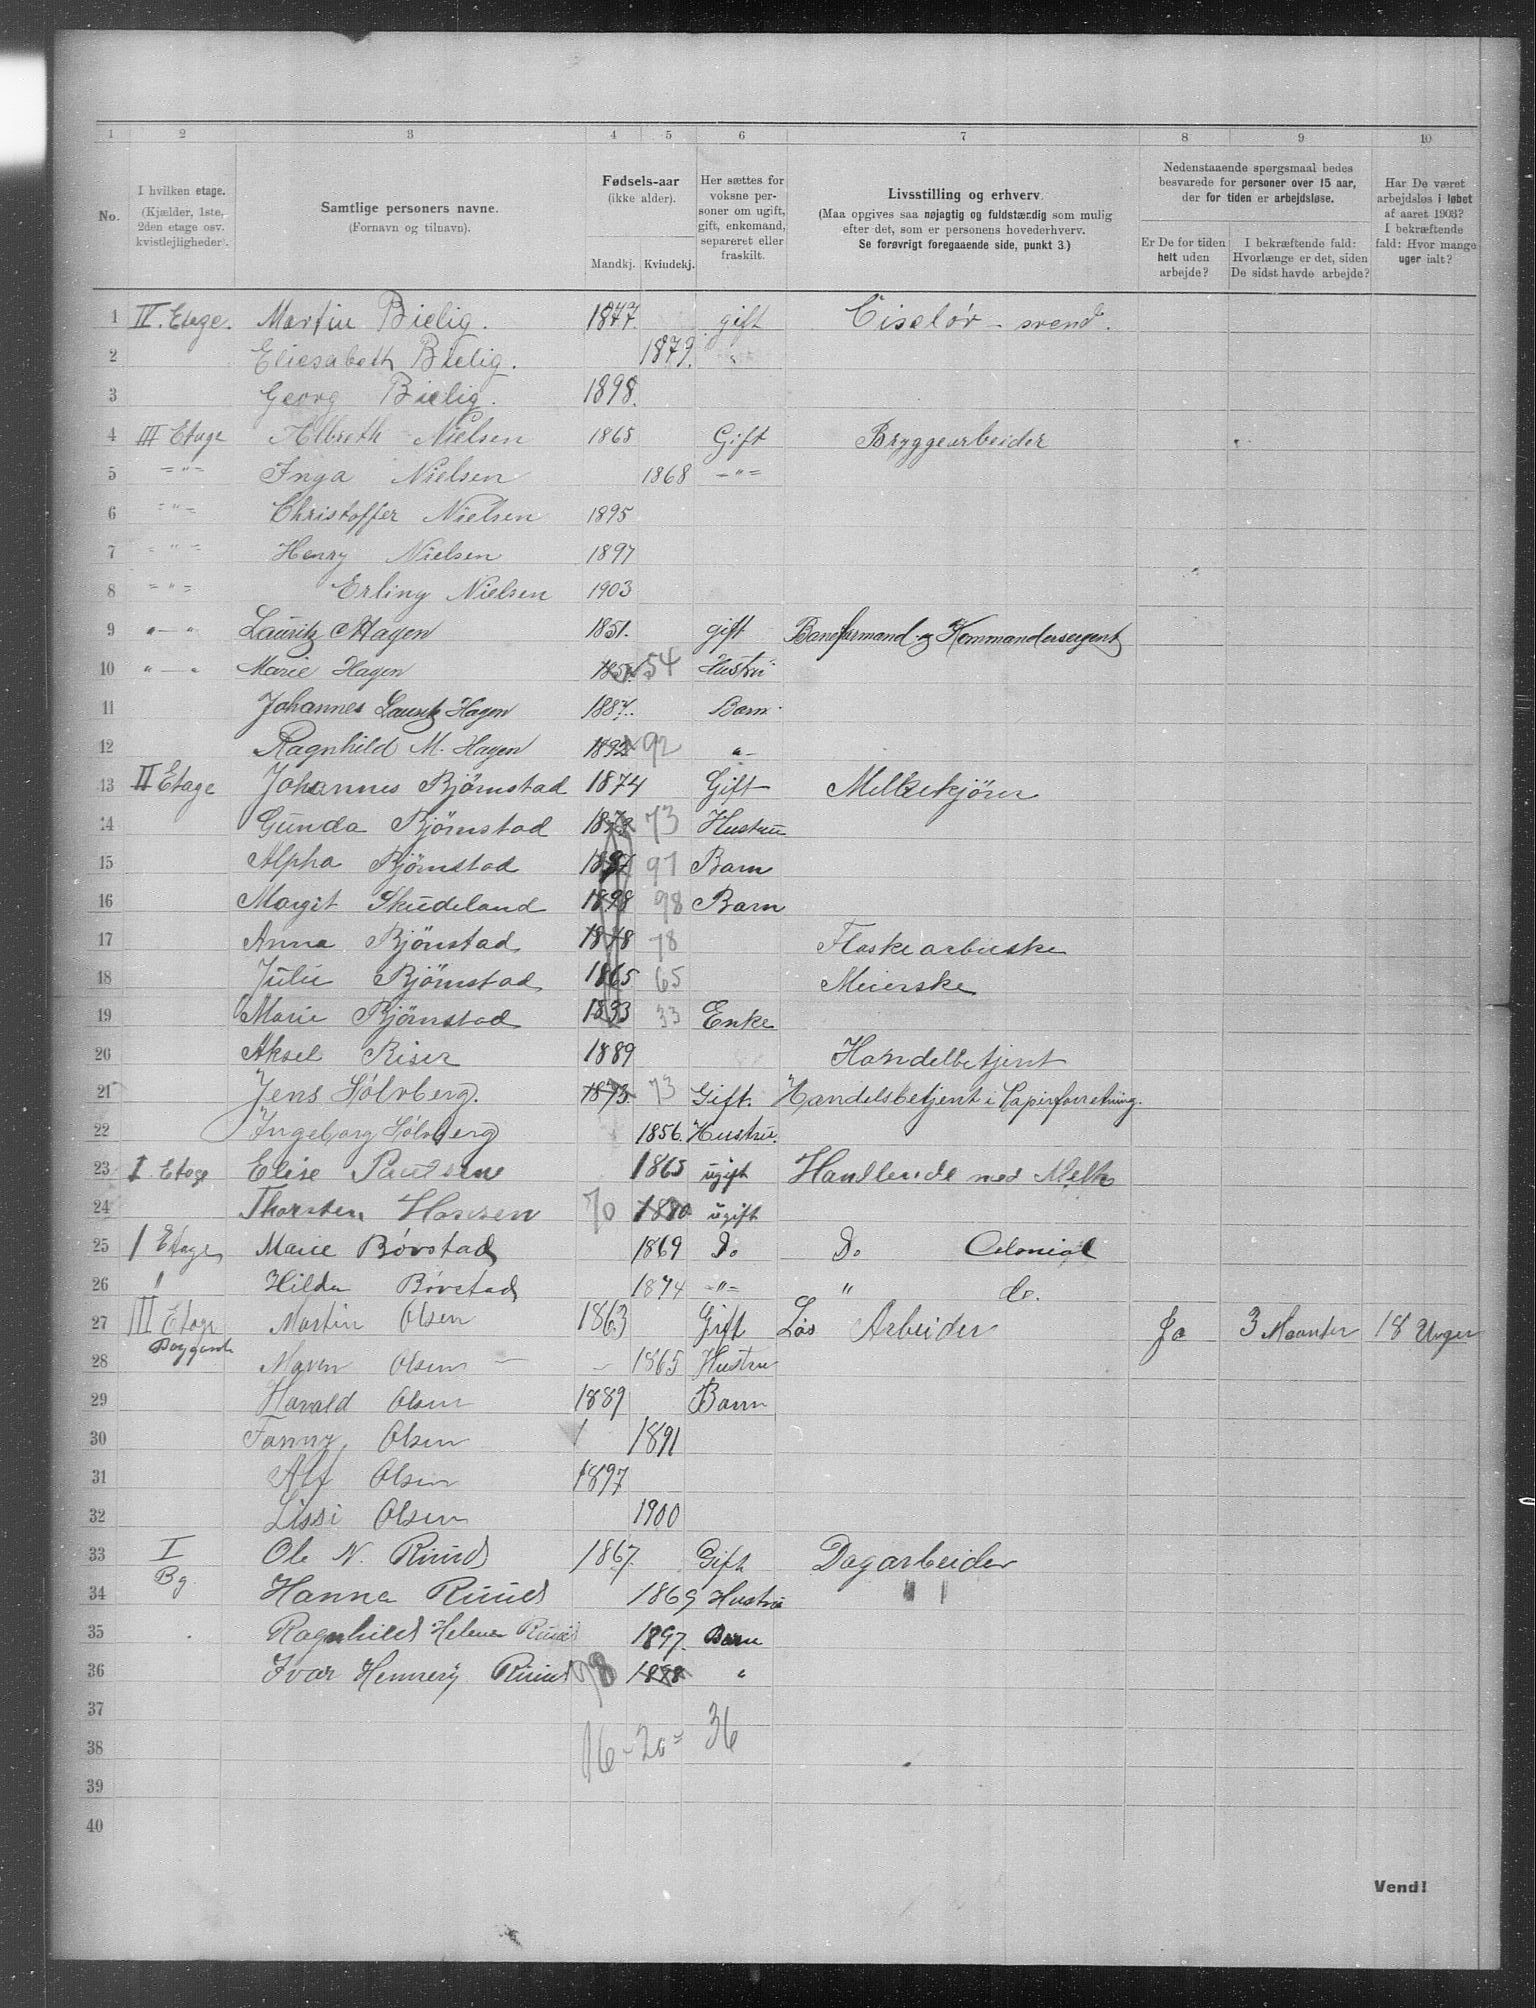 1 2 3 4 5 6 7 8 9 10
No.
I hvilken etage.
(Kjælder, 1ste,
2den etage osv.
kvistlejligheder).
Samtlige personers navne.
(Fornavn og tilnavn).
Fødsels-aar
(ikke alder).
Mandkj. Kvindekj.
Her sættes for
voksne per-
soner om ugift,
gift, enkemand,
separeret eller
fraskilt.
Livsstilling og erhverv.
(Maa opgives saa nøjagtig og fuldstændig som mulig
efter det, som er personens hovederhverv.
Se forøvrigt foregaaende side, punkt 3.)
Nedenstaaende spørgsmaal bedes
besvarede for personer over 15 aar,
der for tiden er arbejdsløse.
Er De for tiden
helt uden
arbejde?
I bekræftende fald:
Hvorlænge er det, siden
De sidst havde arbejde?
Har De været
arbejdsløs i løbet
af aaret 1903?
I bekræftende
fald: Hvor mange
uger ialt?
1 IV. Etage. Martin Bielig. 1877. gift Ciselør - svend.
2 Eliesabeth Bielig. 1879. "
3 Georg Bielig. 1898.
4 III Etage Albreth Nielsen 1865 Gift Bryggearbeider
5 ="= Inga Nielsen 1868 -"=
6 ="= Christoffer Nielsen 1895
7 ="= Henry Nielsen 1897
8 ="= Erling Nielsen 1903
9 "—" Lauritz Hagen 1851. gift Baneformand og Kommandersergent
10 "—" Marie Hagen 54 Hustru
11 Johannes Lauritz Hagen 1887. Barn
12 Ragnhild M. Hagen 1892 92 "
13 II Etage Johannes Bjørnstad 1874 Gift Melkekjører
14 Gunda Bjørnstad 1873 73 Hustru
15 Alpha Bjørnstad 1897 97 Barn
16 Margit Skudeland 1898 98 Barn
17 Anna Bjønstad 1878 78 Flaskearbeiske
18 Julie Bjørnstad 1865 65 Meierske
19 Marie Bjørnstad 1833 33 Enke
20 Aksel Riser 1889 Handelbetjent
21 Jens Sølvberg. 1873. 73 Gift. Handelsbetjent i Papirforretning.
22 Ingeborg Sølvberg 1856. Hustru.
23 I. Etage Elise Paulsen 1865 ugift Handlende med Melk
24 Thorsten Hansen 70 ugift
25 I Etage Marie Børstad 1869 Do Do Colonial
26 " Hilda Børstad 1874 -"= " do.
27 III Etage Martin Olsen 1863 Gift Løs Arbeider Ja 3 Maaneder 18 Uger
Baggaard
28 Maren Olsen — — 1865 Hustru
29 Harald Olsen 1889 Barn
30 Fanny Olsen 1891
31 Alf Olsen 1897
32 Lissi Olsen 1900
33 I Ole N. Ruud 1867. Gift Dagarbeider
Bg.
34 Hanna Ruud 1869 Hustru
35 Ragnhild Helene Ruud 1897. Barn
36 Ivar Hennery Ruud 98 1898 "
37
38 16 - 20 = 36
39
40
Vend!